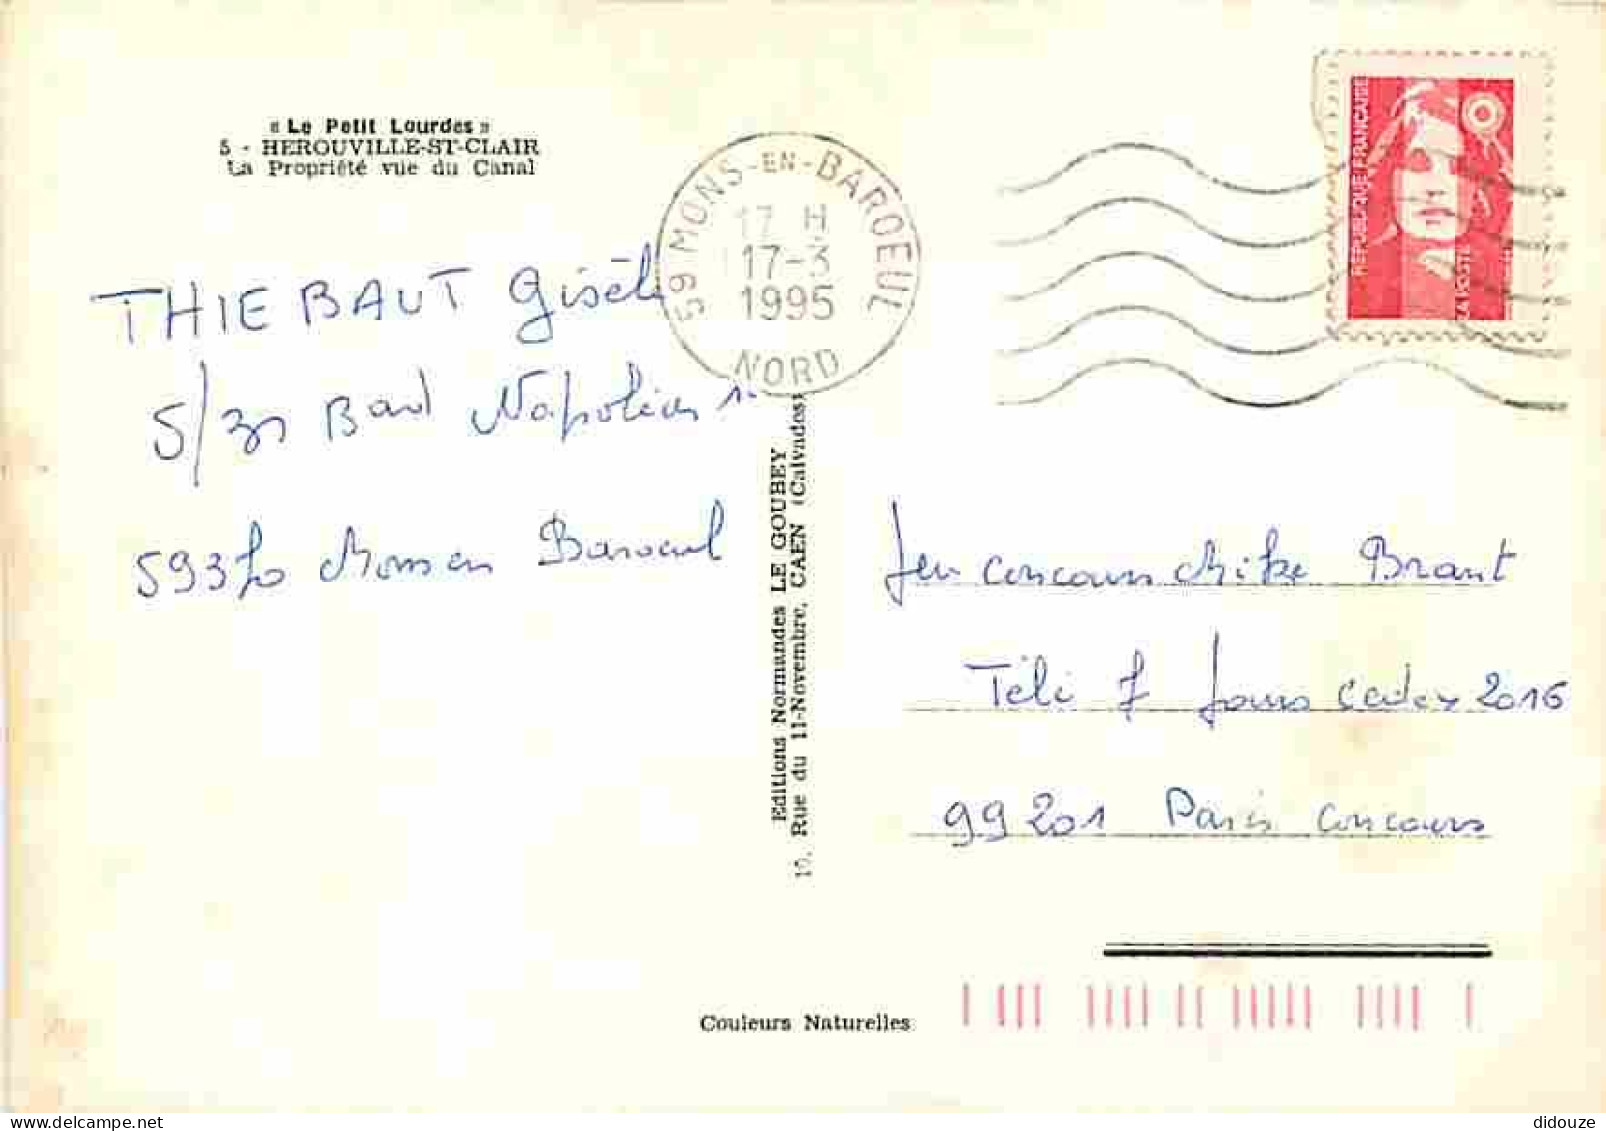 « Le Petit Lourdes »
5 - HEROUVILLE-ST-CLAIR
La Propriété vue du Canal
THIEBAUT Gisèle
5/ Napoléon 1
59370 Mons en Baroeul
59 MONS-EN-BAROEUL
17 H
17-3
1995
NORD
REPUBLIQUE FRANÇAISE
LA POSTE
Editions Normandes LE GOUBEY
10, Rue du 11-Novembre, CAEN (Calvados)
Jeu Concours Mike Brant
Télé 7 Jours Cedex 2016
99201 Paris Concours
Couleurs Naturelles
didouze